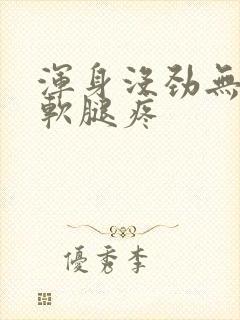 渾身沒勁無
軟腿疼
優秀李